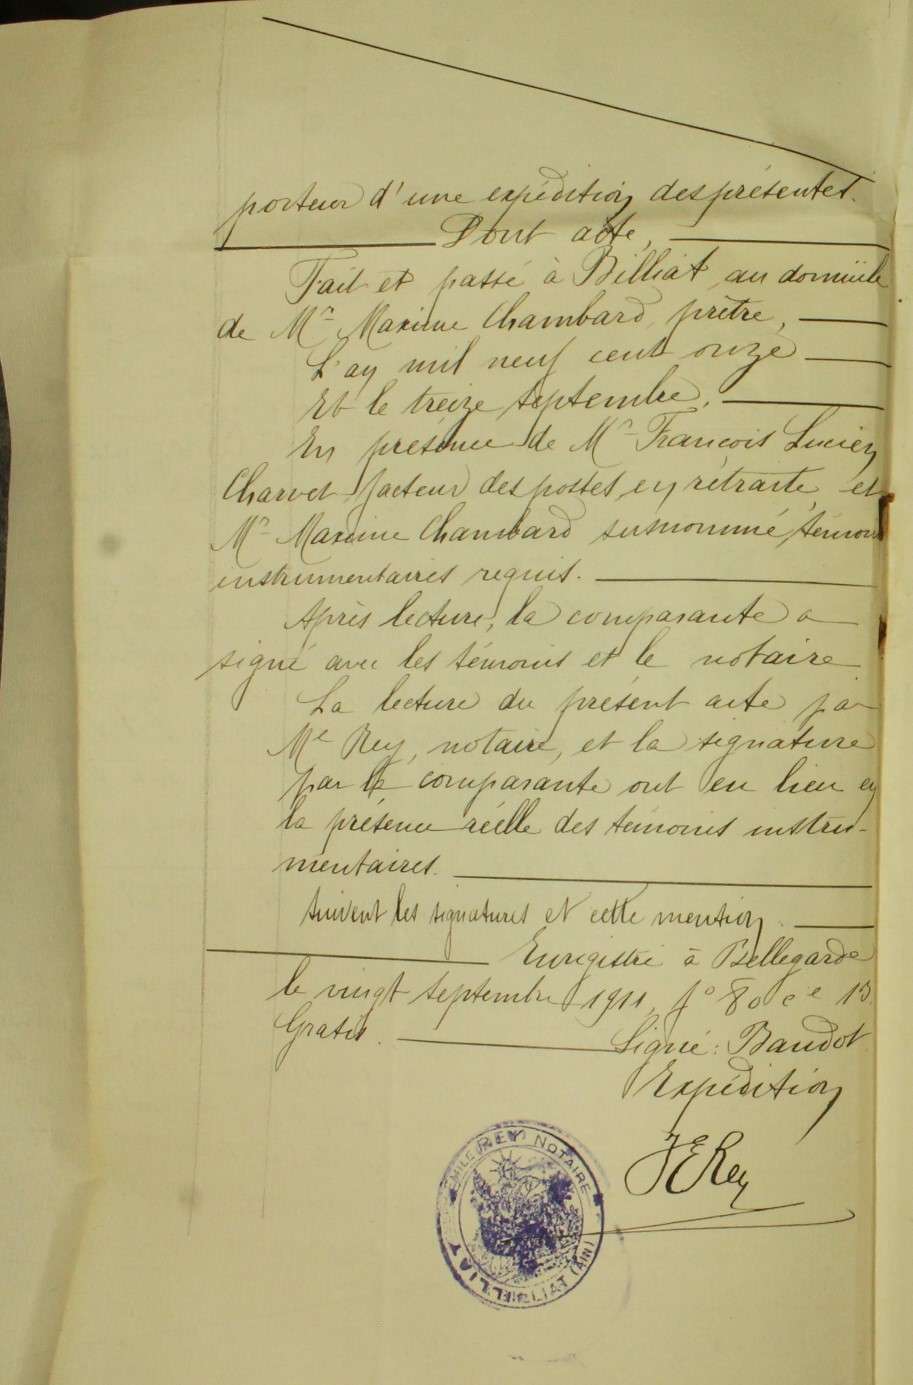 porteur d'une expédition des présentes.
Dont acte,
Fait et passé à Billiat, au domicile
de Mr Maxime Chambard, prêtre,
L'an mil neuf cent onze
Et le treize septembre,
En présence de Mr François Lucien
Charvet facteur des postes en retraite, et
Mr Maxime Chambard susnommé, témoins
instrumentaires requis.
Après lecture, la comparante a
signé avec les témoins et le notaire
La lecture du présent acte par
Me Rey, notaire, et la signature
par la comparante ont eu lieu en
la présence réelle des témoins instru-
mentaires.
Suivent les signatures et cette mention.
Enregistré à Bellegarde
le vingt septembre 1911, fo 80 ce 13.
Gratis. Signé: Baudot
Expédition
EMILE REY NOTAIRE
BILLIAT (AIN)